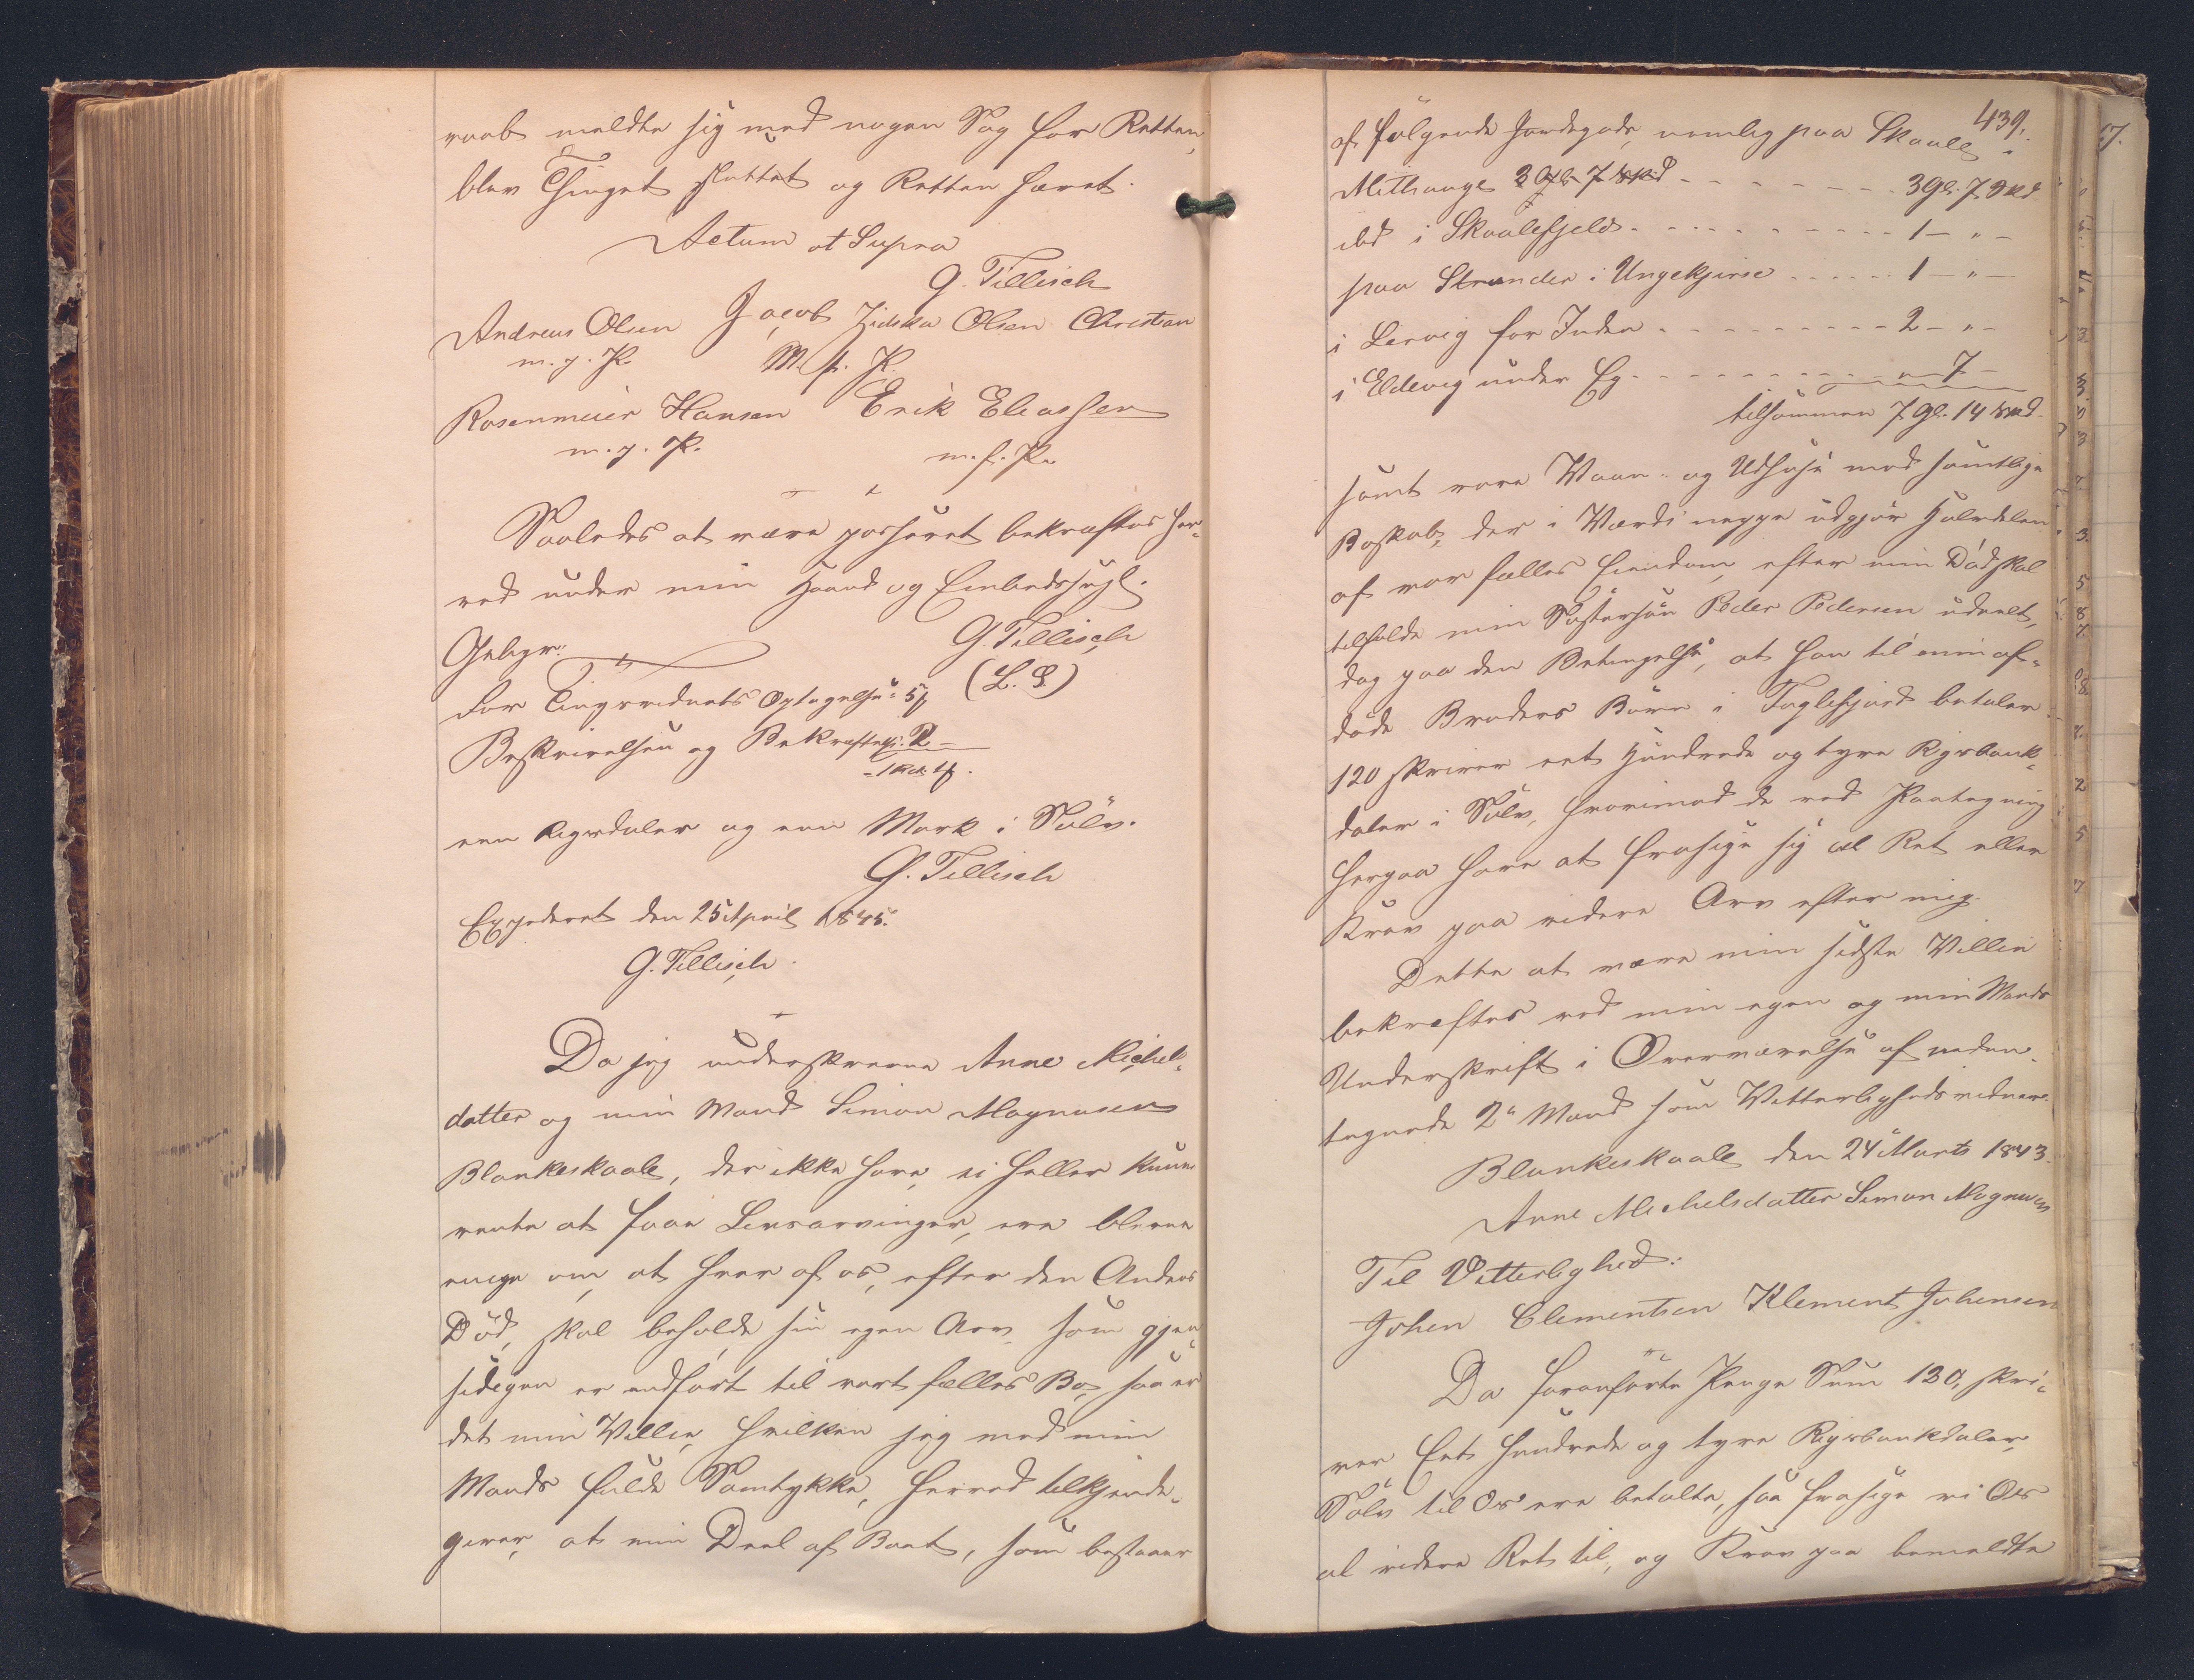 raab meldte sig med nogen Sag for Retten,
blev Thinget sluttet og Retten hævet.
Actum ut Supra
G. Tillisch
Andreas Olsen Jacob Zidska Olsen Christian
m. f. P. M. f. P.
Rosenmeier Hansen Erik Eliassen
m. f. P. m. f. P.
Saaledes at være passeret bekræftes her-
ved under min Haand og Embedssegl.
G. Tillisch
Gebyr: (L. S.)
For Tingsvidnets Optagelse 5
Beskrivelsen og Bekræftelse 2
een Rigsdaler og een Mark i Sølv.
G. Tillisch
Expederet den 25 April 1845.
G. Tillisch.
Da jeg underskrevne Anne Michels-
datter og min Mand Simon Magnusen
Blankeskaale, der ikke have, ei heller kunne
vente at faae Livsarvinger, ere blevne
enige om, at hver af os, efter den Andens
Død, skal beholde sin egen Arv, som gjen-
sidigen er indført til vort fælles Bo, saa er
det min Villie, hvilken jeg med min
Mands fulde Samtykke, herved tilkjende-
giver, at min Deel af Boet, som bestaaer
439.
af følgende Jordegods, nemlig paa Skaale i
Mithauge 3 Gl. 7 Skd 3 Gl. 7 Skd
ibd i Skaalefjeld 1 – " –
paa Strander i Ungekjerse 1 – " –
i Lervig for Inden 2 – " –
i Eldevig under Eg " 7 –
tilsammen 7 Gl. 14 Skd
samt vore Vaan- og Udhuse med samtlige
Boskab, der i Værdi neppe udgjør Halvdelen
af vor fælles Eiendom, efter min Død skal
tilfalde min Søstersøn Peder Pedersen udeelt,
dog paa den Betingelse, at han til min af-
døde Broders Børn i Fuglefjord betaler
120 skriver eet Hundrede og tyve Rigsbank-
daler i Sølv, hvorimod de ved Paategning
herpaa have at frasige sig al Ret eller
Krav paa videre Arv efter mig.
Dette at være min sidste Villie
bekræftes ved min egen og min Mands
Underskrift i Overværelse af neden-
tegnede 2de Mænd som Vitterlighedsvidner.
Blankeskaale den 24 Marts 1843.
Anne Michelsdatter Simon Magnusen
Til Vitterlighed:
Johen Clementsen Klement Johensen
Da foranførte Penge Sum 120, skri-
ver Eet Hundrede og tyve Rigsbankdaler
Sølv til Os ere betalte, saa frasige vi Os
al videre Ret til, og Krav paa bemeldte